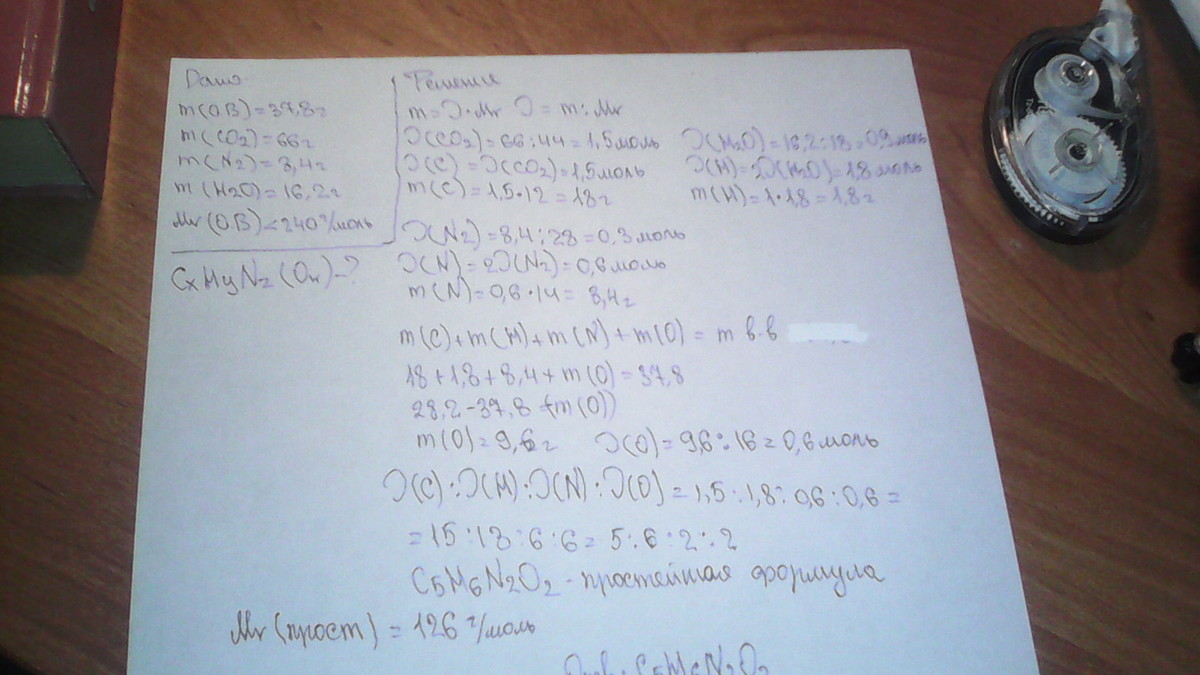 Дано
m(O.B)=37,8г
m(CO2)=66г
m(N2)=8,4г
m(H2O)=16,2г
Mr(O.B)<240г/моль
CxHyN2(On)-?
Решение
m=ϑ·Mr ϑ=m:Mr
ϑ(CO2)=66:44=1,5моль
ϑ(C)=ϑ(CO2)=1,5моль
m(C)=1,5·12=18г
ϑ(H2O)=16,2:18=0,9моль
ϑ(H)=2ϑ(H2O)=1,8моль
m(H)=1·1,8=1,8г
ϑ(N2)=8,4:28=0,3моль
ϑ(N)=2ϑ(N2)=0,6моль
m(N)=0,6·14=8,4г
m(C)+m(H)+m(N)+m(O)=m в-в
18+1,8+8,4+m(O)=37,8
28,2-37,8=m(O)
m(O)=9,6г ϑ(O)=9,6:16=0,6моль
ϑ(C):ϑ(H):ϑ(N):ϑ(O)=1,5:1,8:0,6:0,6=
=15:18:6:6=5:6:2:2
C5H6N2O2-простейшая формула
Mr(прост)=126г/моль
C5H6N2O2